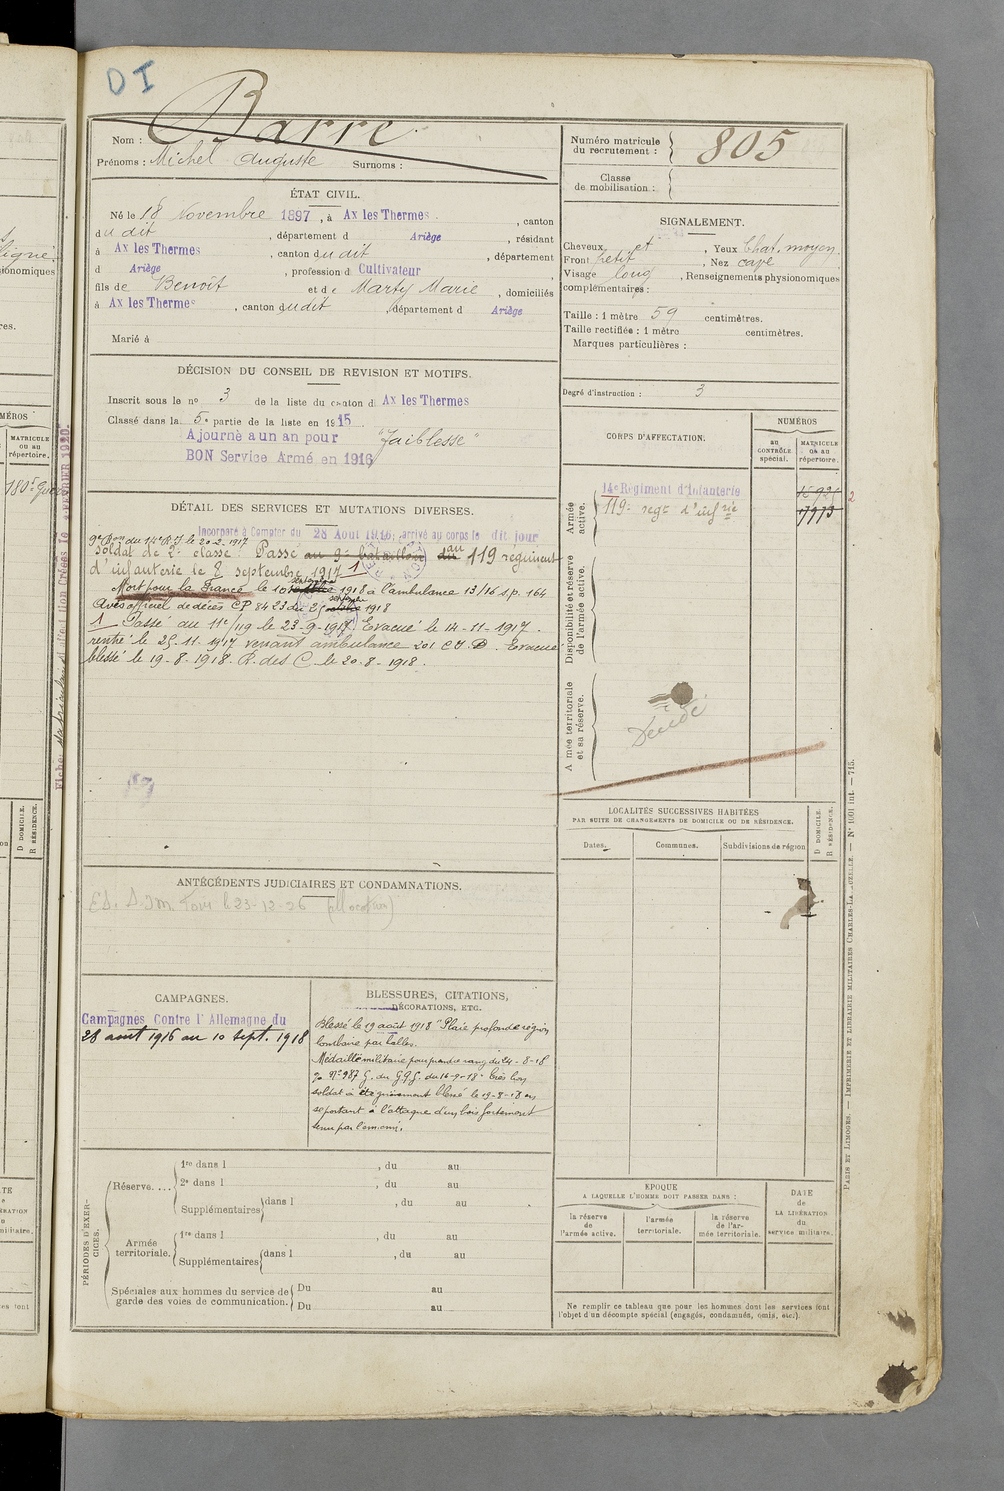 DI
Nom : Barre
Prénoms : Michel Auguste Surnoms :
ÉTAT CIVIL.
Né le 18 Novembre 1897, à Ax les Thermes, canton
dudit, département d Ariège, résidant
à Ax les Thermes, canton dudit, département
d Ariège, profession d Cultivateur,
fils de Benoît et de Marty Marie, domiciliés
à Ax les Thermes, canton dudit, département d Ariège
Marié à
DÉCISION DU CONSEIL DE REVISION ET MOTIFS.
Inscrit sous le no 3 de la liste du canton d Ax les Thermes
Classé dans la 5e partie de la liste en 1915.
Ajourné a un an pour "faiblesse"
BON Service Armé en 1916
DÉTAIL DES SERVICES ET MUTATIONS DIVERSES.
Incorporé à Compter du 28 Août 1916, arrivé au corps le dit jour
9e Bon du 14e R.I le 20-2-1917
soldat de 2e classe. Passé au 9e bataillon du au 119 régiment
d'infanterie le 8 septembre 1917 1
Mort pour la France le 10 septembre 1918 à l'ambulance 13/16 s.p. 164
Avis officiel de décès CP 8423 du 25 octobre 1918
1 Passé au 11e/119 le 23-9-1917. Evacué le 14-11-1917.
rentré le 25-11-1917 venant ambulance 201 Evacué
blessé le 19-8-1918. R. des C. le 20-8-1918.
ANTÉCÉDENTS JUDICIAIRES ET CONDAMNATIONS.
le 23-12-26 (allocation)
CAMPAGNES.
Campagnes Contre l'Allemagne du
28 août 1916 au 10 sept. 1918
BLESSURES, CITATIONS,
DÉCORATIONS, ETC.
Blessé le 19 août 1918 "Plaie profonde région
lombaire par balles.
Médaille militaire pour prendre rang du 24-8-18
Jo No 987 G. du G.Q.G. du 16-9-18 "très bon
soldat a été grièvement blessé le 19-8-18 en
se portant à l'attaque d'un bois fortement
tenu par l'ennemi.
PÉRIODES D'EXERCICES.
Réserve....
1re dans l , du au
2e dans l , du au
Supplémentaires dans l , du au
Armée territoriale.
1re dans l , du au
Supplémentaires dans l , du au
Spéciales aux hommes du service de garde des voies de communication.
Du au
Du au
Numéro matricule du recrutement : 805
Classe de mobilisation :
SIGNALEMENT.
Cheveux et, Yeux Chat. moyen.
Front petit, Nez cave
Visage long, Renseignements physionomiques
complémentaires :
Taille : 1 mètre 59 centimètres.
Taille rectifiée : 1 mètre centimètres.
Marques particulières :
Degré d'instruction : 3
CORPS D'AFFECTATION.
NUMÉROS
au CONTRÔLE spécial.
MATRICULE ou au répertoire.
Armée active.
14e Régiment d'Infanterie
119e regt d'infrie
Disponibilité et réserve de l'armée active.
Armée territoriale et sa réserve.
LOCALITÉS SUCCESSIVES HABITÉES
PAR SUITE DE CHANGEMENTS DE DOMICILE OU DE RÉSIDENCE.
Dates. Communes. Subdivisions de région
D DOMICILE.
R RÉSIDENCE.
ÉPOQUE
A LAQUELLE L'HOMME DOIT PASSER DANS :
la réserve de l'armée active.
l'armée territoriale.
la réserve de l'armée territoriale.
DATE de LA LIBÉRATION du service militaire.
Ne remplir ce tableau que pour les hommes dont les services font
l'objet d'un décompte spécial (engagés, condamnés, omis, etc.).